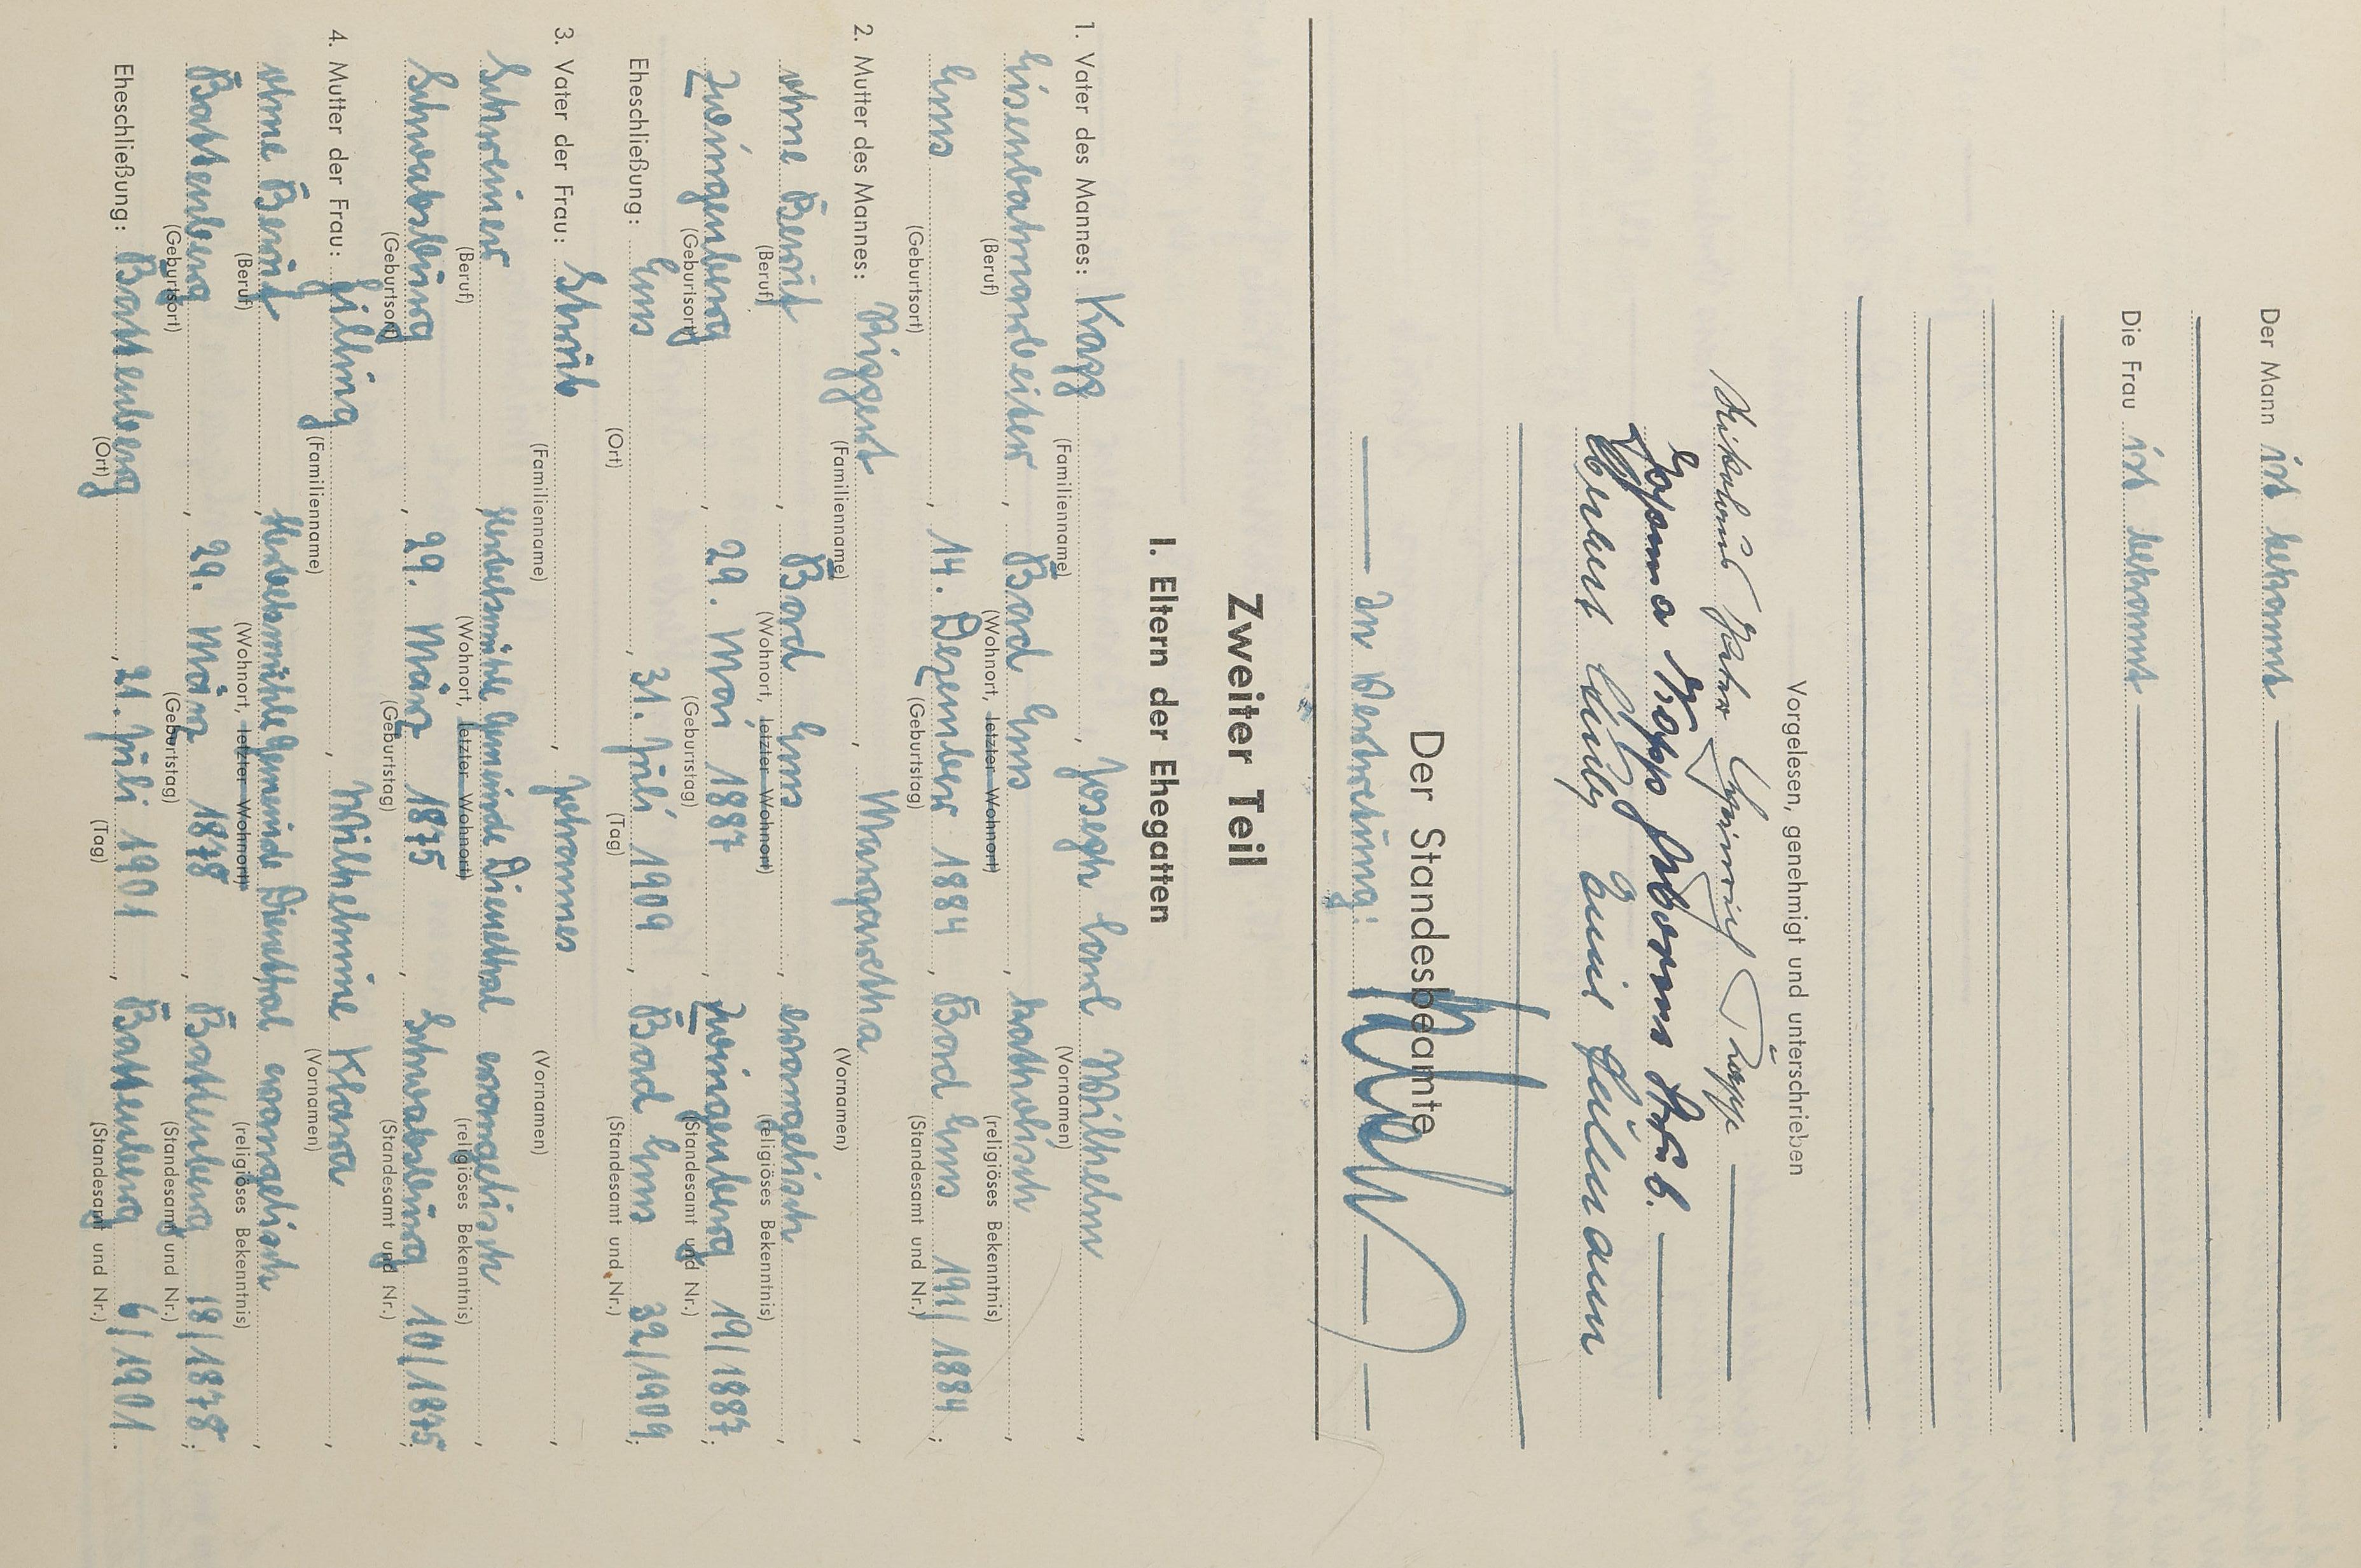 Der Mann ist bekannt
Die Frau ist bekannt
Vorgelesen, genehmigt und unterschrieben
Heinrich Kapp
Johanna Kapp geborene Strüb.
Der Standesbeamte
In Vertretung:
Zweiter Teil
I. Eltern der Ehegatten
1. Vater des Mannes: Kapp, Joseph Carl Wilhelm,
(Familienname) (Vornamen)
Eisenbahnarbeiter, Bad Ems, katholisch,
(Beruf) (Wohnort, letzter Wohnort) (religiöses Bekenntnis)
Ems, 14. Dezember 1884, Bad Ems 191/1884;
(Geburtsort) (Geburtstag) (Standesamt und Nr.)
2. Mutter des Mannes: Riggert, Margaretha,
(Familienname) (Vornamen)
ohne Beruf, Bad Ems, evangelisch,
(Beruf) (Wohnort, letzter Wohnort) (religiöses Bekenntnis)
Zwingenberg, 29. Mai 1887, Zwingenberg 19/1887;
(Geburtsort) (Geburtstag) (Standesamt und Nr.)
Eheschließung: Ems, 31. Juli 1909, Bad Ems 32/1909;
(Ort) (Tag) (Standesamt und Nr.)
3. Vater der Frau: Strüb, Johannes,
(Familienname) (Vornamen)
Schreiner, Gemeinde Dienethal evangelisch,
(Beruf) (Wohnort, letzter Wohnort) (religiöses Bekenntnis)
29. März 1875, 10/1875;
(Geburtsort) (Geburtstag) (Standesamt und Nr.)
4. Mutter der Frau: Wilhelmine Klara,
(Familienname) (Vornamen)
ohne Beruf, Gemeinde Dienethal evangelisch,
(Beruf) (Wohnort, letzter Wohnort) (religiöses Bekenntnis)
Battenberg, 29. März 1878, Battenberg 18/1878;
(Geburtsort) (Geburtstag) (Standesamt und Nr.)
Eheschließung: Battenberg, 21. Juli 1901, Battenberg 6/1901.
(Ort) (Tag) (Standesamt und Nr.)